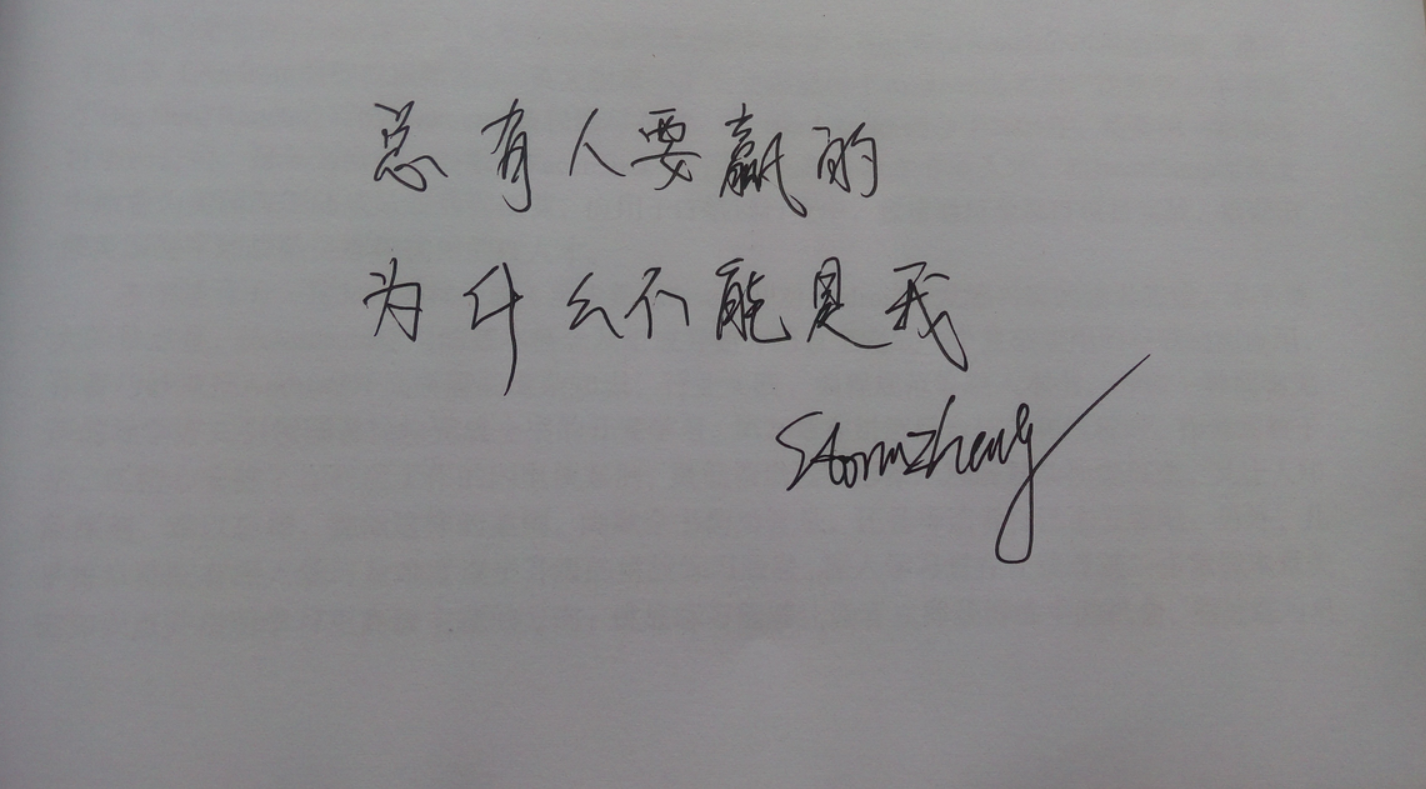 总有人要赢的
为什么不能是我
Stormzhang